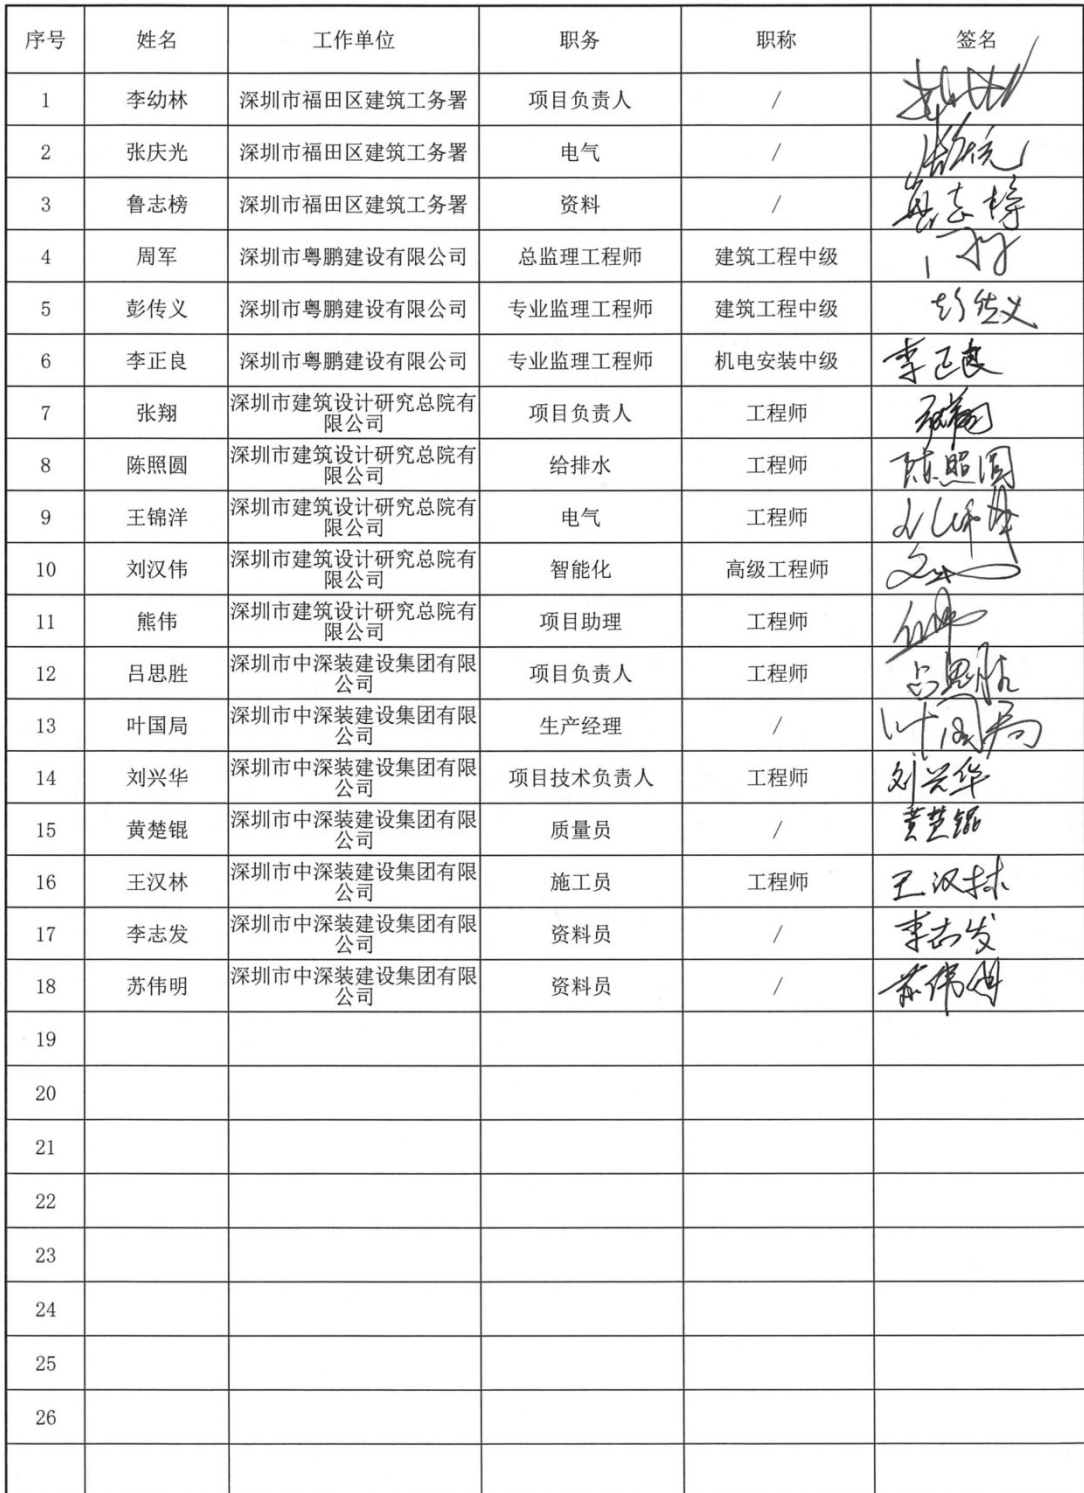 序号 姓名 工作单位 职务 职称 签名
1 李幼林 深圳市福田区建筑工务署 项目负责人 /
2 张庆光 深圳市福田区建筑工务署 电气 /
3 鲁志榜 深圳市福田区建筑工务署 资料 / 鲁志榜
4 周军 深圳市粤鹏建设有限公司 总监理工程师 建筑工程中级
5 彭传义 深圳市粤鹏建设有限公司 专业监理工程师 建筑工程中级 彭传义
6 李正良 深圳市粤鹏建设有限公司 专业监理工程师 机电安装中级 李正良
7 张翔 深圳市建筑设计研究总院有 项目负责人 工程师 张翔
限公司
8 陈照圆 深圳市建筑设计研究总院有 给排水 工程师 陈照圆
限公司
9 王锦洋 深圳市建筑设计研究总院有 电气 工程师
限公司
10 刘汉伟 深圳市建筑设计研究总院有 智能化 高级工程师
限公司
11 熊伟 深圳市建筑设计研究总院有 项目助理 工程师
限公司
12 吕思胜 深圳市中深装建设集团有限 项目负责人 工程师 吕思胜
公司
13 叶国局 深圳市中深装建设集团有限 生产经理 / 叶国局
公司
14 刘兴华 深圳市中深装建设集团有限 项目技术负责人 工程师 刘兴华
公司
15 黄楚锟 深圳市中深装建设集团有限 质量员 / 黄楚锟
公司
16 王汉林 深圳市中深装建设集团有限 施工员 工程师 王汉林
公司
17 李志发 深圳市中深装建设集团有限 资料员 / 李志发
公司
18 苏伟明 深圳市中深装建设集团有限 资料员 / 苏伟明
公司
19
20
21
22
23
24
25
26